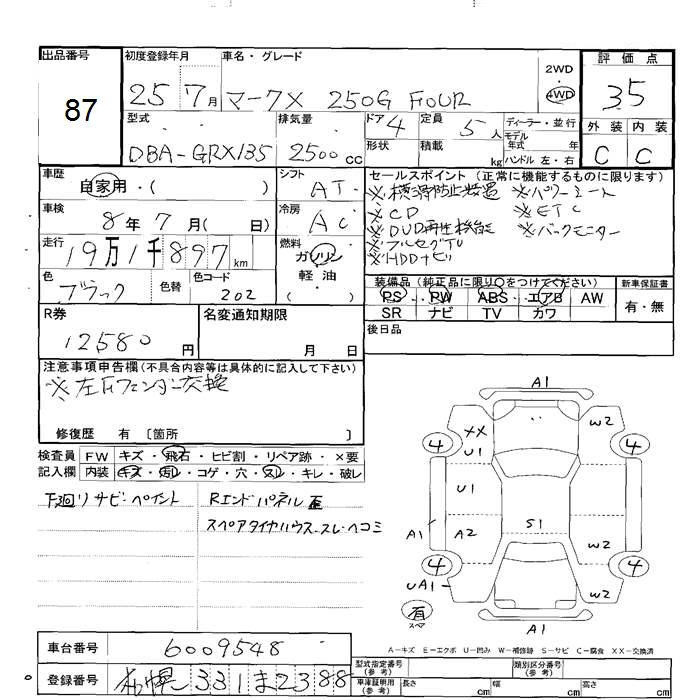 出品番号
87
初度登録年月
25 7月
車名・グレード
マークX 250G FOUR
2WD
・
4WD
評価点
3.5
型式
DBA-GRX135
排気量
2500cc
ドア
4
定員
5人
形状
積載
kg
ディーラー・並行
モデル
年式 年
ハンドル 左・右
外装 内装
C C
車歴
自家用・( )
シフト
AT・
車検
8年7月( 日)
冷房
AC
走行
19万1千897km
燃料
ガソリン
軽・油
( )
色
ブラック
色替
色コード
202
セールスポイント(正常に機能するものに限ります)
※横滑防止装置 ※パワーシート
※CD ※ETC
※DVD再生機能 ※バックモニター
※フルセグTV
※HDDナビ
装備品(純正品に限り○をつけてください)
PS・PW・ABS・エアB AW
SR ナビ TV カワ
新車保証書
有・無
後日品
R券
12580円
名変通知期限
月 日
注意事項申告欄(不具合内容等は具体的に記入して下さい)
※左Fフェンダー交換
修復歴 有〔箇所 〕
検査員
記入欄
FW キズ・飛石・ヒビ割・リペア跡・×要
内装 キズ・汚レ・コゲ・穴・スレ・キレ・破レ
下廻りサビ・ペイント
Rエンドパネル歪
スペアタイヤハウス スレ・ヘコミ
A1
XX
U1
W2
4 4
U1
A1 A2 S1 W2
4 4
UA1 W2
有
スペア
A1
A-キズ E-エクボ U-凹み W-補修跡 S-サビ C-腐食 XX-交換済
車台番号
6009548
登録番号
札幌 331 ま 2388
型式指定番号
(参考)
類別区分番号
(参考)
車庫証明用
(参考)
長さ cm 幅 cm 高さ cm